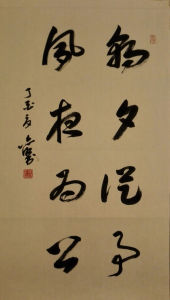 朝夕從事
夙夜為公
丁亥夏